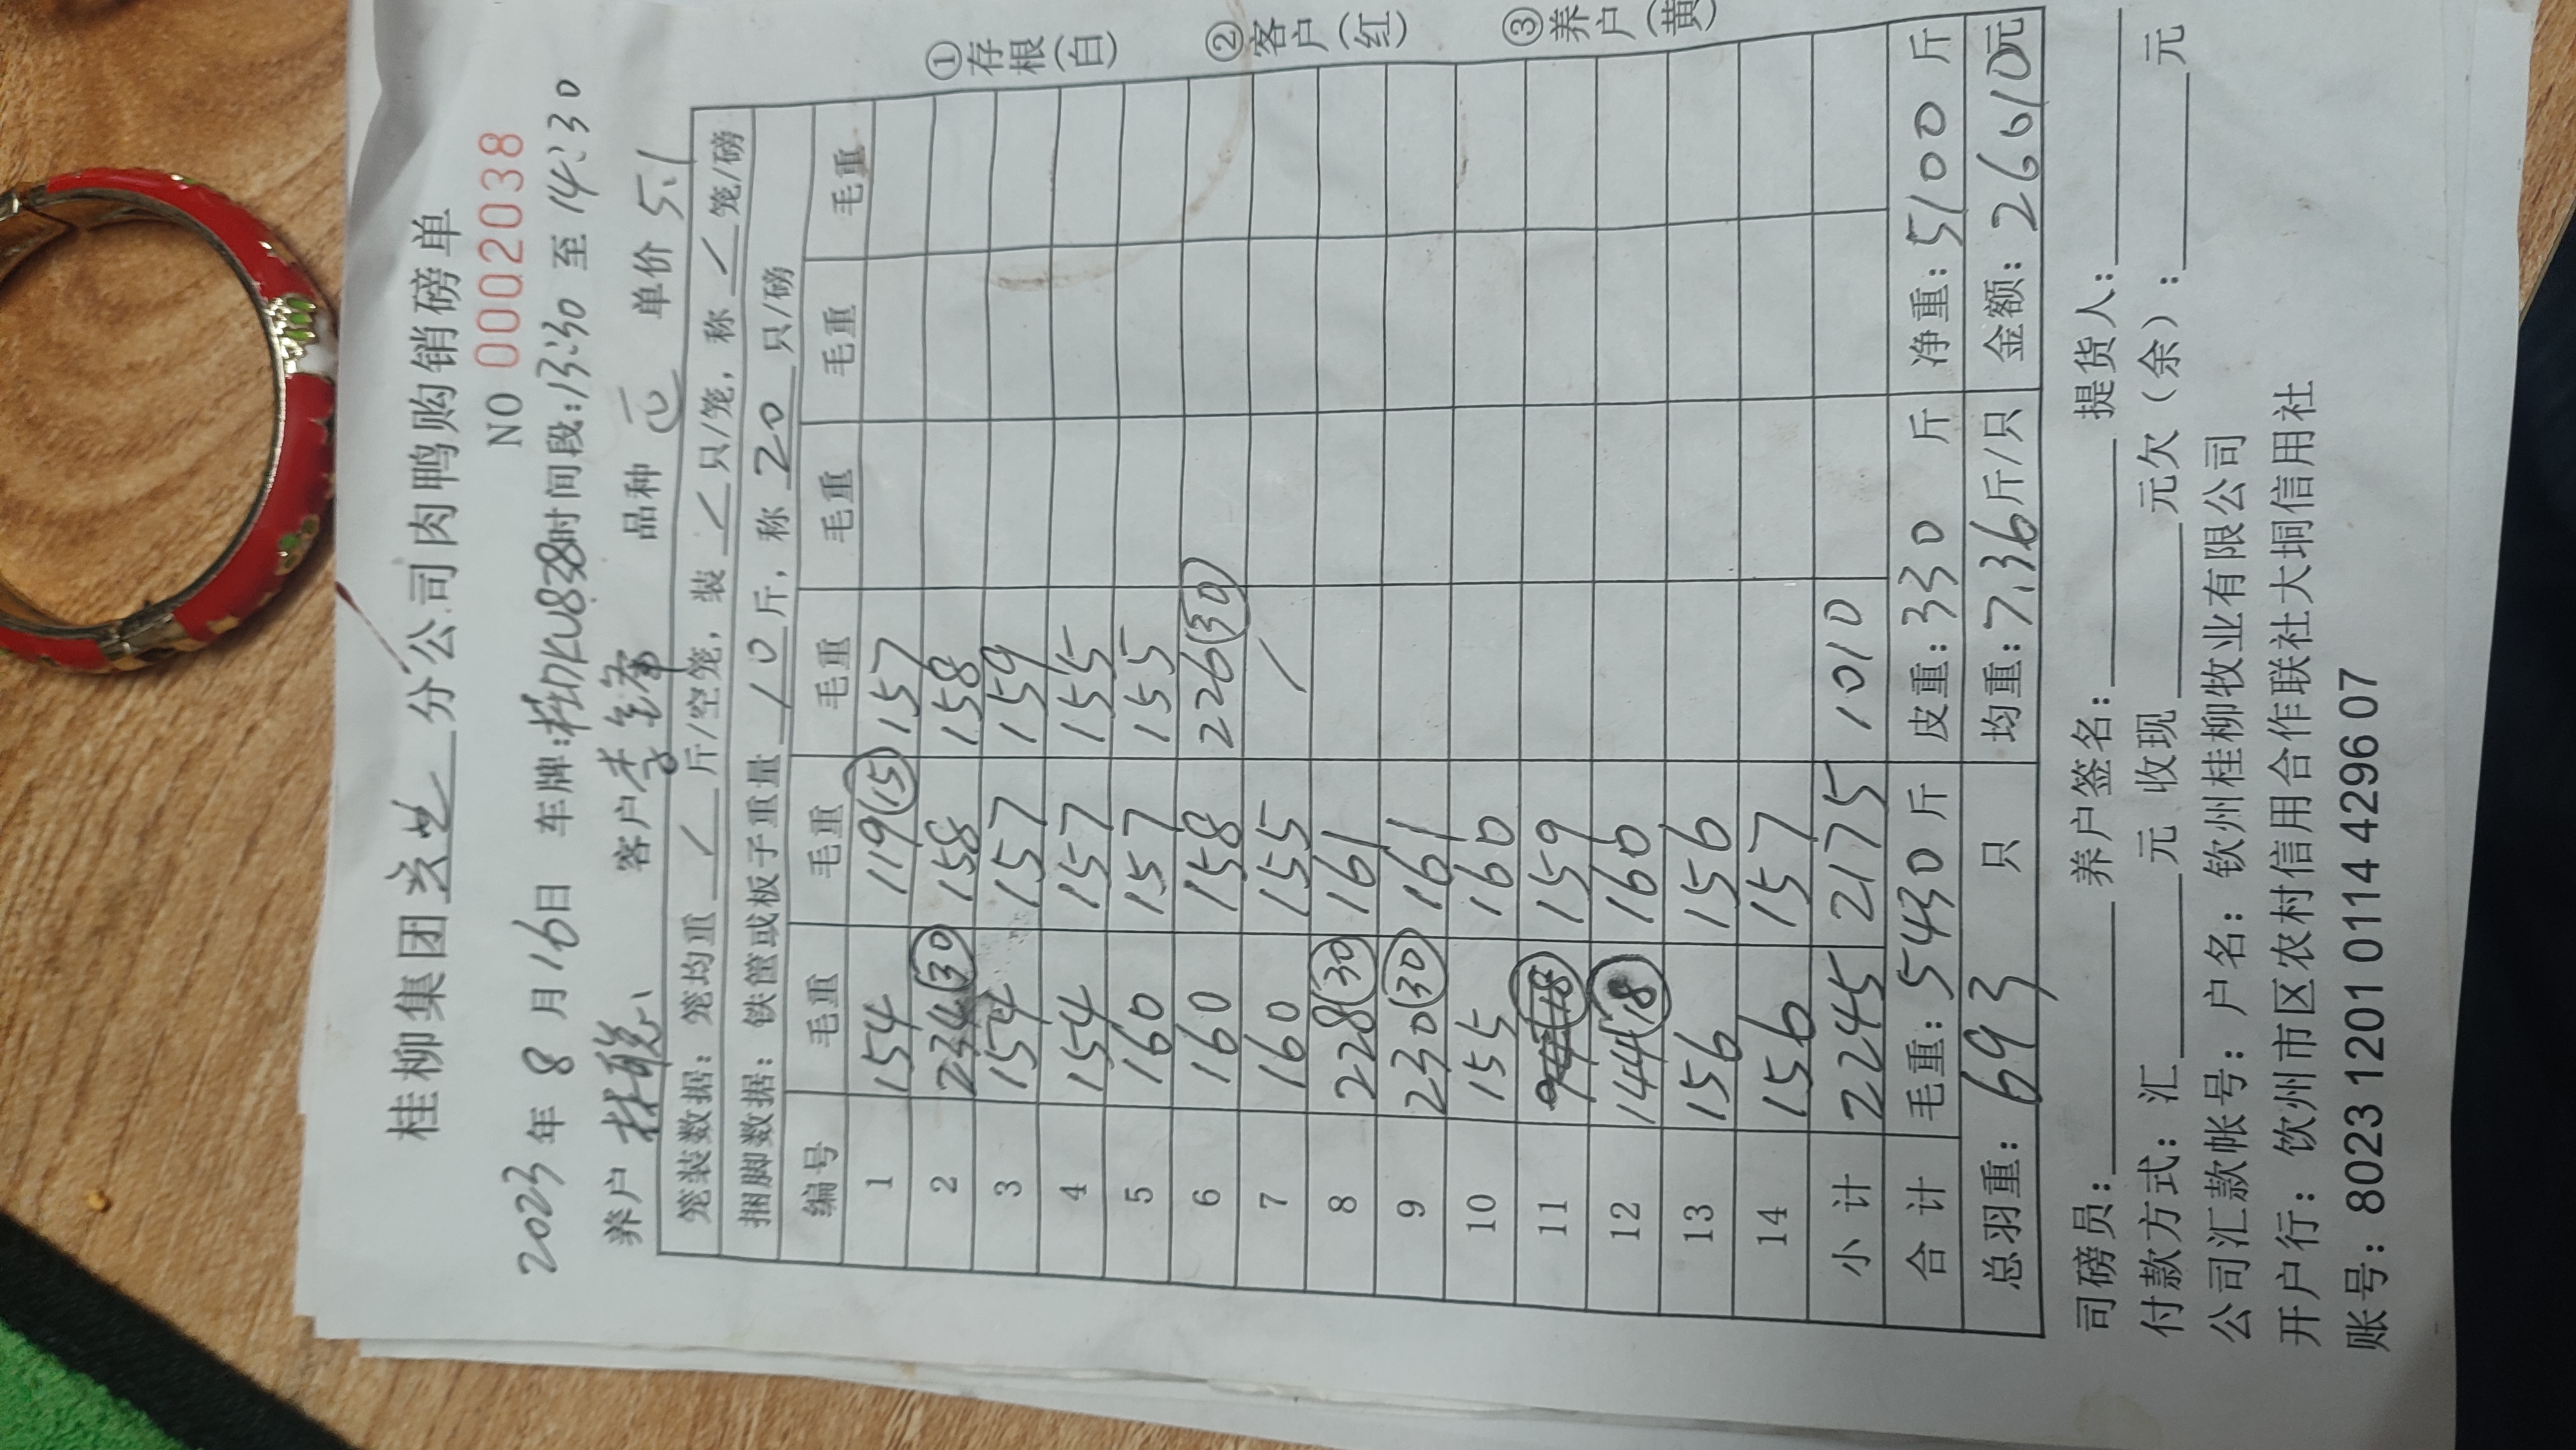 桂柳集团 分公司肉鸭购销磅单
NO 0002038
2023年 8月16日 车牌: 838时间段:13:30 至 14:30
养户 林 客户李 品种 单价 5.1
笼装数据：笼均重 / 斤/空笼，装 / 只/笼，称 / 笼/磅
捆脚数据：铁筐或板子重量 10 斤，称 20 只/磅
编号 毛重 毛重 毛重 毛重 毛重 毛重
1 154 119(15) 157
2 234(30) 158 158
3 154 157 159
4 154 157 155
5 160 157 155
6 160 158 226(30)
7 160 155 /
8 228(30) 161
9 230(30) 161
10 155 160
11 159
12 144(18) 160
13 156 156
14 156 157
小计 2245 2175 1010
合计 毛重：5430斤 皮重：330 斤 净重：5100 斤
总羽重：693 只 均重：7.36斤/只 金额：26010元
①存根(白) ②客户(红) ③养户(黄
司磅员： 养户签名： 提货人：
付款方式：汇 元 收现 元欠（余）： 元
公司汇款帐号：户名：钦州桂柳牧业有限公司
开户行：钦州市区农村信用合作联社大垌信用社
账号：8023 1201 0114 4296 07